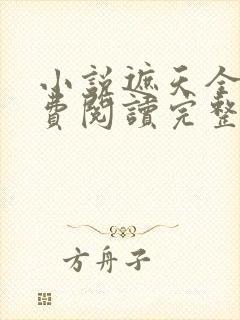 小說遮天全
費閱讀完整
方舟子